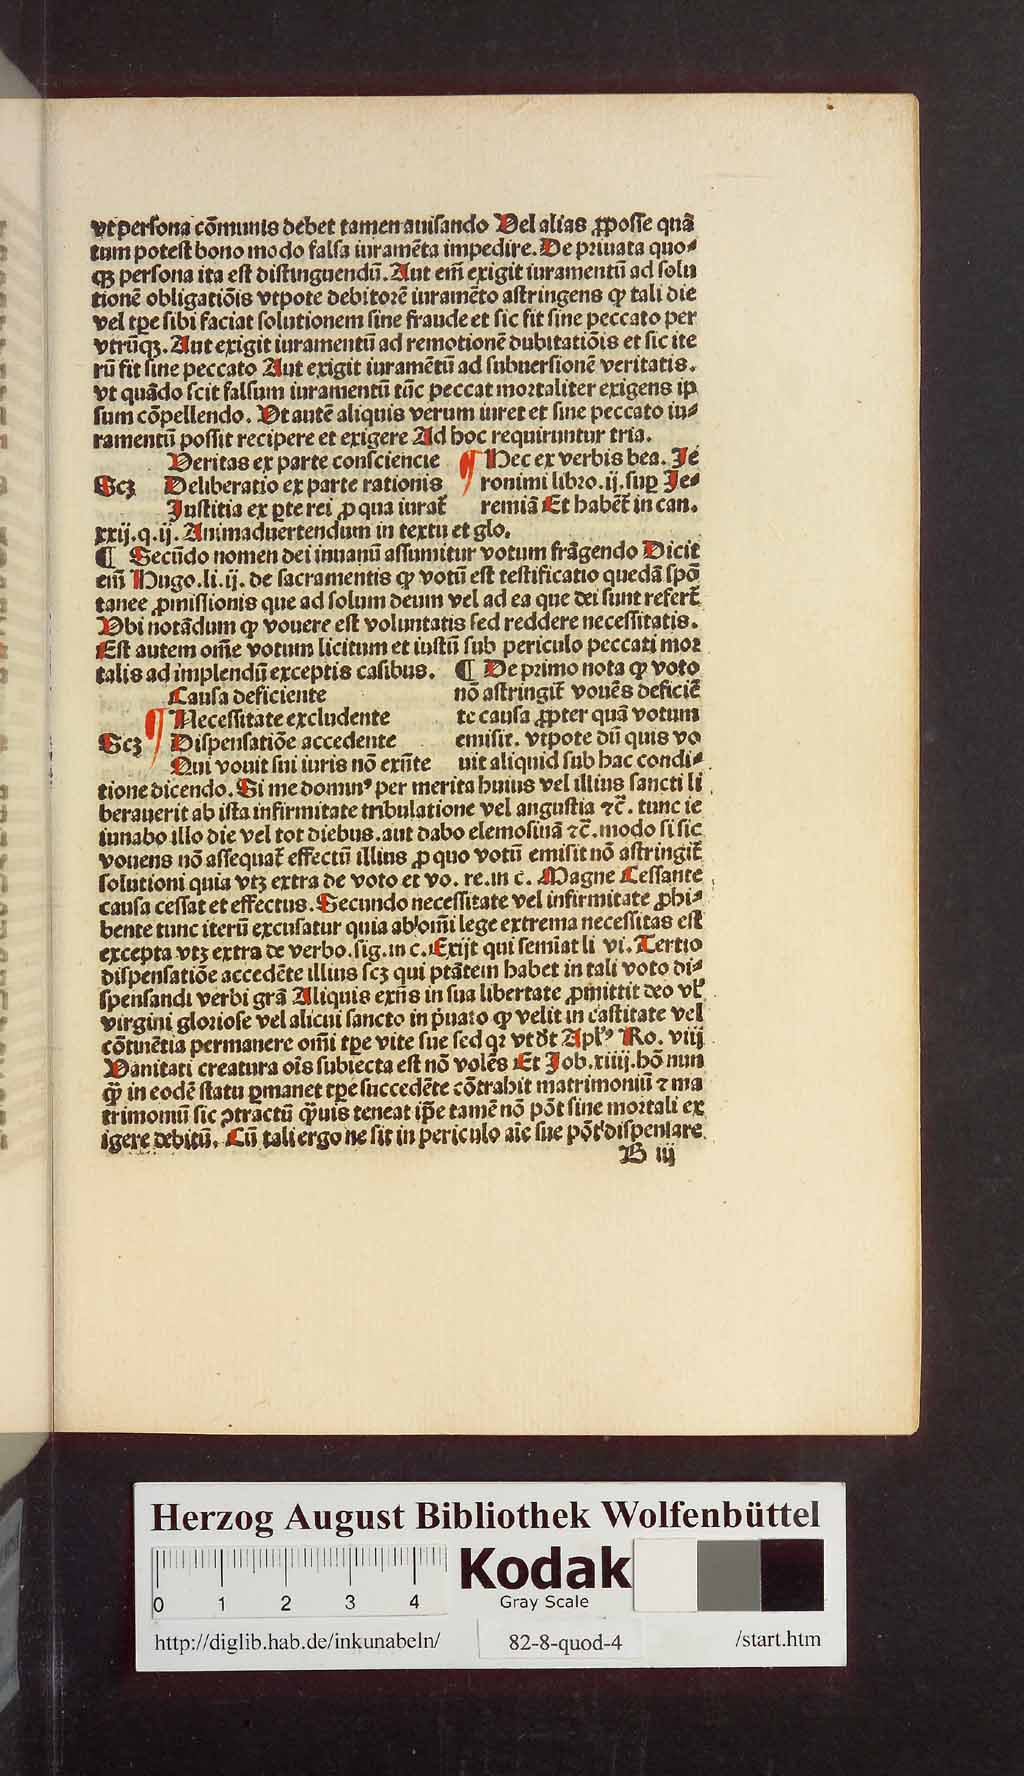 vt persona cōmunis debet tamen auisando Vel alias ꝓposse quā
tum potest bono modo falsa iuramēta impedire. De priuata quo⸗
qꝫ persona ita est distinguendū. Aut em̄ exigit iuramentū ad solu
tionē obligatiōis vtpote debitorē iuramēto astringens ꝙ tali die
vel tꝑe sibi faciat solutionem sine fraude et sic fit sine peccato per
vtrūqꝫ. Aut exigit iuramentū ad remotionē dubitatiōis et sic ite
rū fit sine peccato Aut exigit iuramētū ad subuersionē veritatis.
vt quādo scit falsum iuramentū tūc peccat mortaliter exigens ip
sum cōpellendo. Vt autē aliquis verum iuret et sine peccato iu⸗
ramentū possit recipere et exigere Ad hoc requiruntur tria.
Veritas ex parte consciencie
Scꝫ Deliberatio ex parte rationis
Justitia ex ꝑte rei ꝓ qua iurat᷑
¶ Hec ex verbis bea. Je
ronimi libro. ij. suꝑ Je⸗
remiā Et habet᷑ in can.
xxij. q. ij. Animaduertendum in textu et glo.
¶ Secūdo nomen dei inuanū assumitur votum frāgendo Dicit
em̄ Hugo. li. ij. de sacramentis ꝙ votū est testificatio quedā spō
tanee ꝓmissionis que ad solum deum vel ad ea que dei sunt refert᷑
Vbi notādum ꝙ vouere est voluntatis sed reddere necessitatis.
Est autem om̄e votum licitum et iustū sub periculo peccati mor
talis ad implendū exceptis casibus.
Causa deficiente
¶ Necessitate excludente
Scꝫ Dispensatiōe accedente
Qui vouit sui iuris nō exn̄te
¶ De primo nota ꝙ voto
nō astringit᷑ vouēs deficiē
te causa ꝓpter quā votum
emisit. vtpote dū quis vo
uit aliquid sub hac condi⸗
tione dicendo. Si me domin⁹ per merita huius vel illius sancti li
berauerit ab ista infirmitate tribulatione vel angustia ⁊c̄. tunc ie
iunabo illo die vel tot diebus. aut dabo elemosinā ⁊c̄. modo si sic
vouens nō assequat᷑ effectū illius ꝓ quo votū emisit nō astringit᷑
solutioni quia vtꝫ extra de voto et vo. re. in c. Magne Cessante
causa cessat et effectus. Secundo necessitate vel infirmitate ꝓhi⸗
bente tunc iterū excusatur quia ab om̄i lege extrema necessitas est
excepta vtꝫ extra de verbo. sig. in c. Exijt qui semīat li vi. Tertio
dispensatiōe accedēte illius scꝫ qui ptātem habet in tali voto di⸗
spensandi verbi grā Aliquis exn̄s in sua libertate ꝓmittit deo vl̓
virgini gloriose vel alicui sancto in priuato ꝙ velit in castitate vel
cōtinētia permanere om̄i tꝑe vite sue sed qꝛ vt dt̄ Apl̓s Ro. viij
Vanitati creatura oīs subiecta est nō volēs Et Job. xiiij. hō nun
ꝙ̄ in eodē statu ꝑmanet tꝑe succedēte cōtrahit matrimoniū ⁊ ma
trimoniū sic ꝯtractū ꝙ̄uis teneat ip̄e tamē nō pōt sine mortali ex
igere debitū. Cū tali ergo ne sit in periculo aīe sue pōt dispensare
B iij
Herzog August Bibliothek Wolfenbüttel
0 1 2 3 4
Kodak
Gray Scale
http://diglib.hab.de/inkunabeln/ 82-8-quod-4 /start.htm